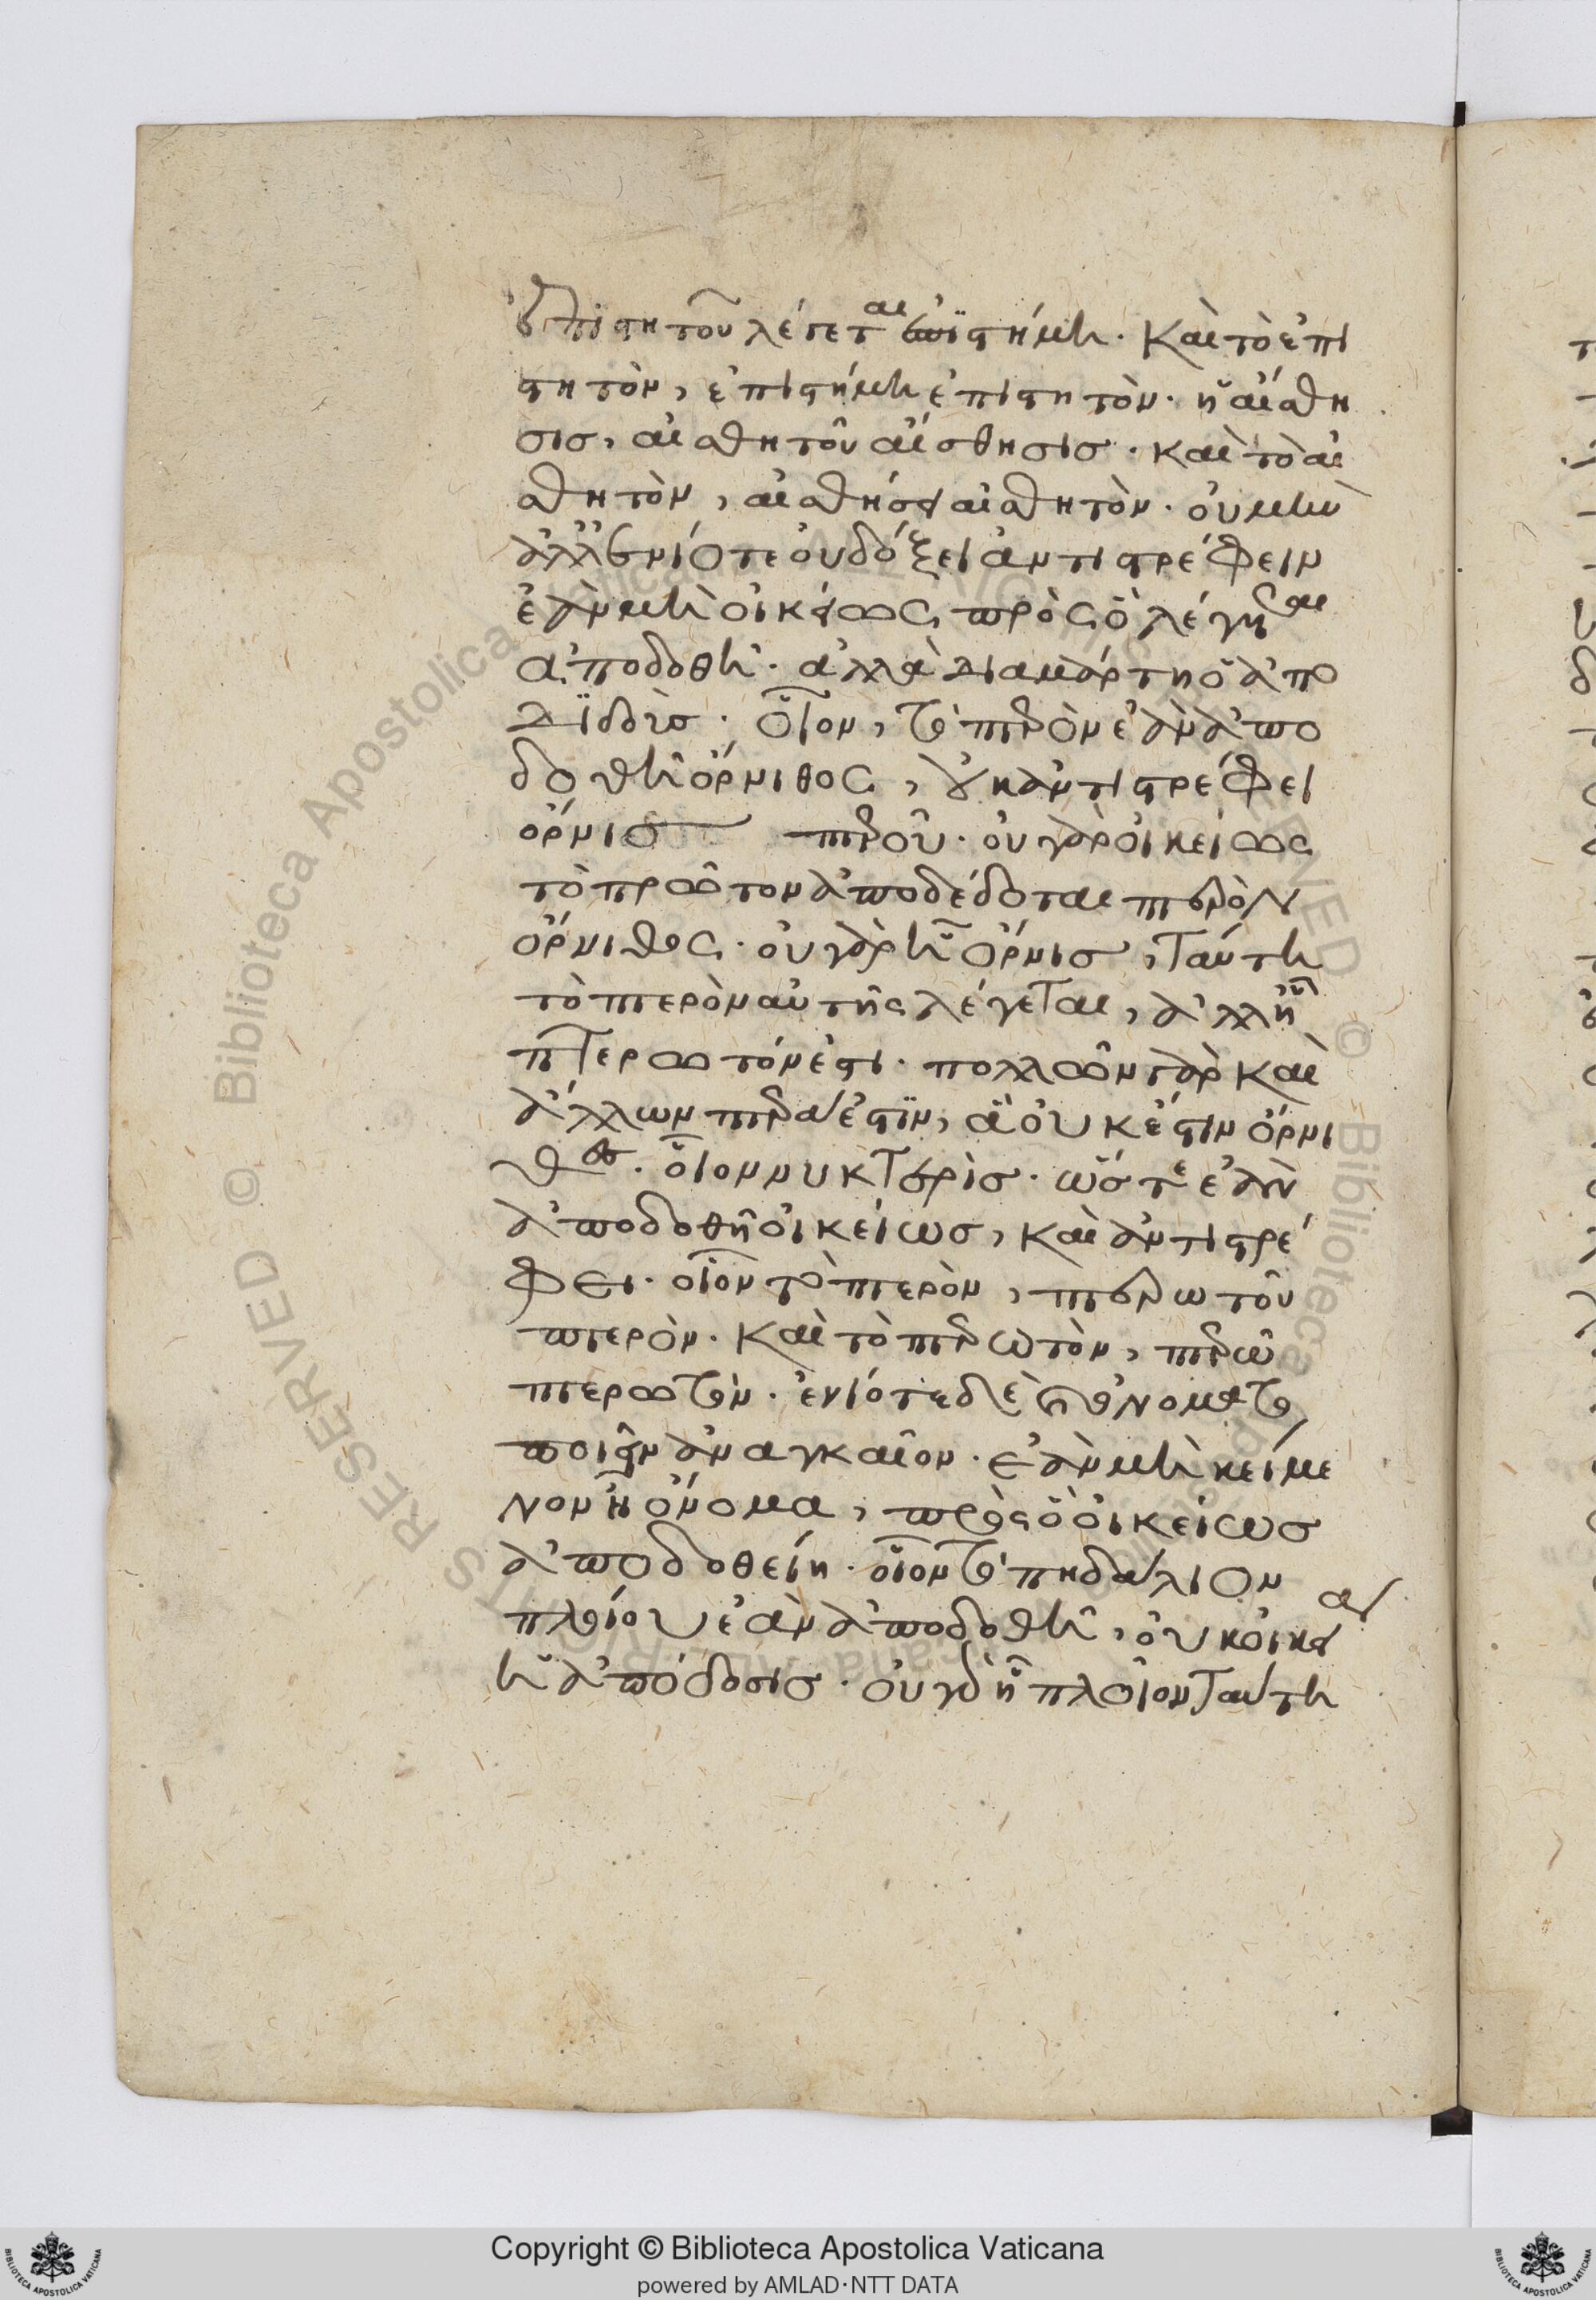 ἐπιστητοῦ λέγεται ἐπιστήμη. καὶ τὸ ἐπι
στητὸν, ἐπιστήμη ἐπιστητὸν. ἡ αἴσθη
σις, αἰσθητοῦ αἴσθησις. καὶ τὸ αἰ
σθητὸν, αἰσθήσει αἰσθητὸν. οὐ μὴν
ἀλλ' ἐνίοτε οὐ δόξει ἀντιστρέφειν
ἐὰν μὴ οἰκείως πρὸς ὃ λέγηται
ἀποδοθῆ. ἀλλὰ διαμάρτη ὁ ἀπο
διδοὺς. οἷον, τὸ πτερὸν ἐὰν ἀπο
δοθῆ ὄρνιθος, οὐκ ἀντιστρέφει
ὄρνις πτεροῦ. οὐ γὰρ οἰκείως
τὸ πρῶτον ἀποδέδοται πτερὸν
ὄρνιθος. οὐ γὰρ ἧ ὄρνις, ταύτη
τὸ πτερὸν αὐτῆς λέγεται, ἀλλ' ἧ
πτερωτόν ἐστι. πολλῶν γὰρ καὶ
ἄλλων πτερά ἐστιν, ἃ οὐκ ἔστιν ὄρνι
θες. οἷον νυκτερὶς. ὥστε ἐὰν
ἀποδοθῆ οἰκείως, καὶ ἀντιστρέ
φει. οἷον τὸ πτερὸν, πτερωτοῦ
πτερὸν. καὶ τὸ πτερωτὸν, πτερῶ
πτερωτὸν. ἐνίοτε δὲ καὶ ὀνοματο
ποιεῖν ἀναγκαῖον. ἐὰν μὴ κείμε
νον ἦ ὄνομα, πρὸς ὃ οἰκείως
ἀποδοθείη. οἷον τὸ πηδάλιον
πλοίου ἐὰν ἀποδοθῆ, οὐκ οἰκεία
ἡ ἀπόδοσις. οὐ γὰρ ἧ πλοῖον ταύτη
© Biblioteca Apostolica Vaticana
Copyright © Biblioteca Apostolica Vaticana
powered by AMLAD·NTT DATA